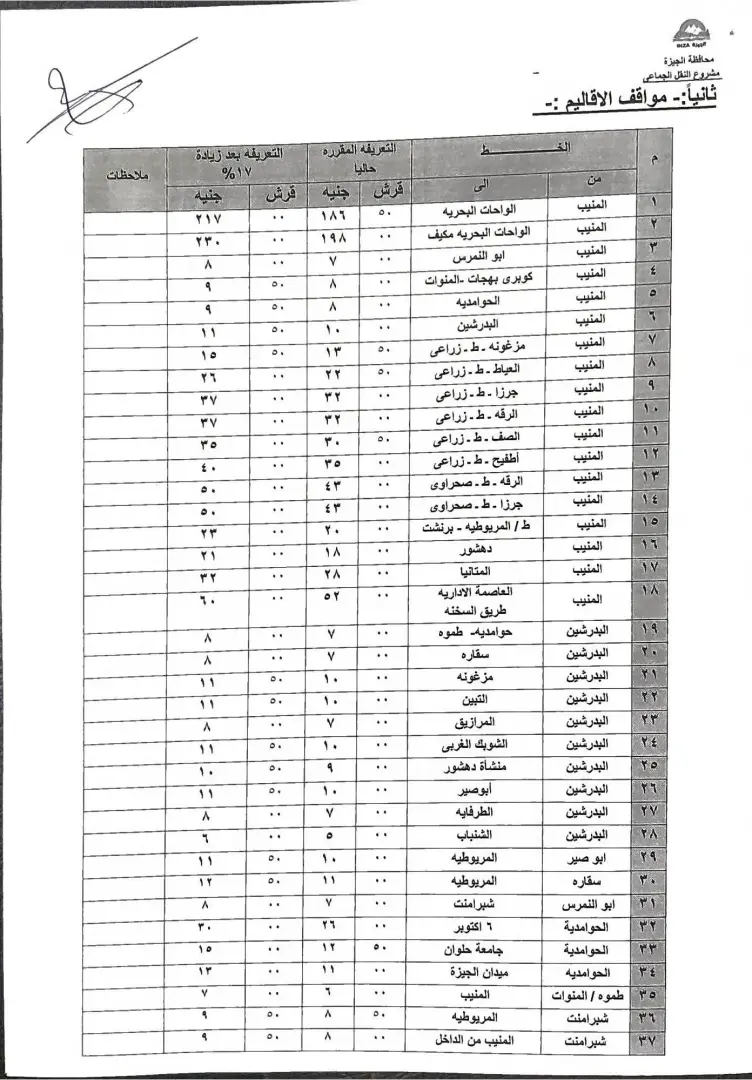 الجيزة GIZA
محافظة الجيزة
مشروع النقل الجماعى
ثانياً:- مواقف الاقاليم :-
م الخـــــط التعريفه المقرره حاليا التعريفه بعد زيادة ١٧% ملاحظات
من الى قرش جنيه قرش جنيه
١ المنيب الواحات البحريه ٥٠ ١٨٦ ٠٠ ٢١٧
٢ المنيب الواحات البحريه مكيف ٠٠ ١٩٨ ٠٠ ٢٣٠
٣ المنيب ابو النمرس ٠٠ ٧ ٠٠ ٨
٤ المنيب كوبرى بهجات -المنوات ٠٠ ٨ ٥٠ ٩
٥ المنيب الحوامديه ٠٠ ٨ ٥٠ ٩
٦ المنيب البدرشين ٠٠ ١٠ ٥٠ ١١
٧ المنيب مزغونه - ط - زراعى ٥٠ ١٣ ٥٠ ١٥
٨ المنيب العياط - ط - زراعى ٥٠ ٢٢ ٠٠ ٢٦
٩ المنيب جرزا - ط - زراعى ٠٠ ٣٢ ٠٠ ٣٧
١٠ المنيب الرقه - ط - زراعى ٠٠ ٣٢ ٠٠ ٣٧
١١ المنيب الصف - ط - زراعى ٥٠ ٣٠ ٠٠ ٣٥
١٢ المنيب أطفيح - ط - زراعى ٠٠ ٣٥ ٠٠ ٤٠
١٣ المنيب الرقه - ط - صحراوى ٠٠ ٤٣ ٠٠ ٥٠
١٤ المنيب جرزا - ط - صحراوى ٠٠ ٤٣ ٠٠ ٥٠
١٥ المنيب ط / المريوطيه - برنشت ٠٠ ٢٠ ٠٠ ٢٣
١٦ المنيب دهشور ٠٠ ١٨ ٠٠ ٢١
١٧ المنيب المتانيا ٠٠ ٢٨ ٠٠ ٣٢
١٨ المنيب العاصمة الاداريه طريق السخنه ٠٠ ٥٢ ٠٠ ٦٠
١٩ البدرشين حوامديه- طموه ٠٠ ٧ ٠٠ ٨
٢٠ البدرشين سقاره ٠٠ ٧ ٠٠ ٨
٢١ البدرشين مزغونه ٠٠ ١٠ ٥٠ ١١
٢٢ البدرشين التبين ٠٠ ١٠ ٥٠ ١١
٢٣ البدرشين المرازيق ٠٠ ٧ ٠٠ ٨
٢٤ البدرشين الشوبك الغربى ٠٠ ١٠ ٥٠ ١١
٢٥ البدرشين منشأة دهشور ٠٠ ٩ ٥٠ ١٠
٢٦ البدرشين أبوصير ٠٠ ١٠ ٥٠ ١١
٢٧ البدرشين الطرفايه ٠٠ ٧ ٠٠ ٨
٢٨ البدرشين الشنباب ٠٠ ٥ ٠٠ ٦
٢٩ ابو صير المريوطيه ٠٠ ١٠ ٥٠ ١١
٣٠ سقاره المريوطيه ٠٠ ١١ ٥٠ ١٢
٣١ ابو النمرس شبرامنت ٠٠ ٧ ٠٠ ٨
٣٢ الحوامدية ٦ اكتوبر ٠٠ ٢٦ ٠٠ ٣٠
٣٣ الحوامدية جامعة حلوان ٥٠ ١٢ ٠٠ ١٥
٣٤ الحوامديه ميدان الجيزة ٠٠ ١١ ٠٠ ١٣
٣٥ طموه / المنوات المنيب ٠٠ ٦ ٠٠ ٧
٣٦ شبرامنت المريوطيه ٥٠ ٨ ٥٠ ٩
٣٧ شبرامنت المنيب من الداخل ٠٠ ٨ ٥٠ ٩